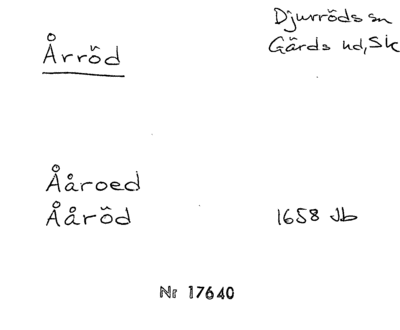 Årröd
Djurröds sn
Gärds hd, Sk
Ååroed
Ååröd 1658 Jb
Nr 17640